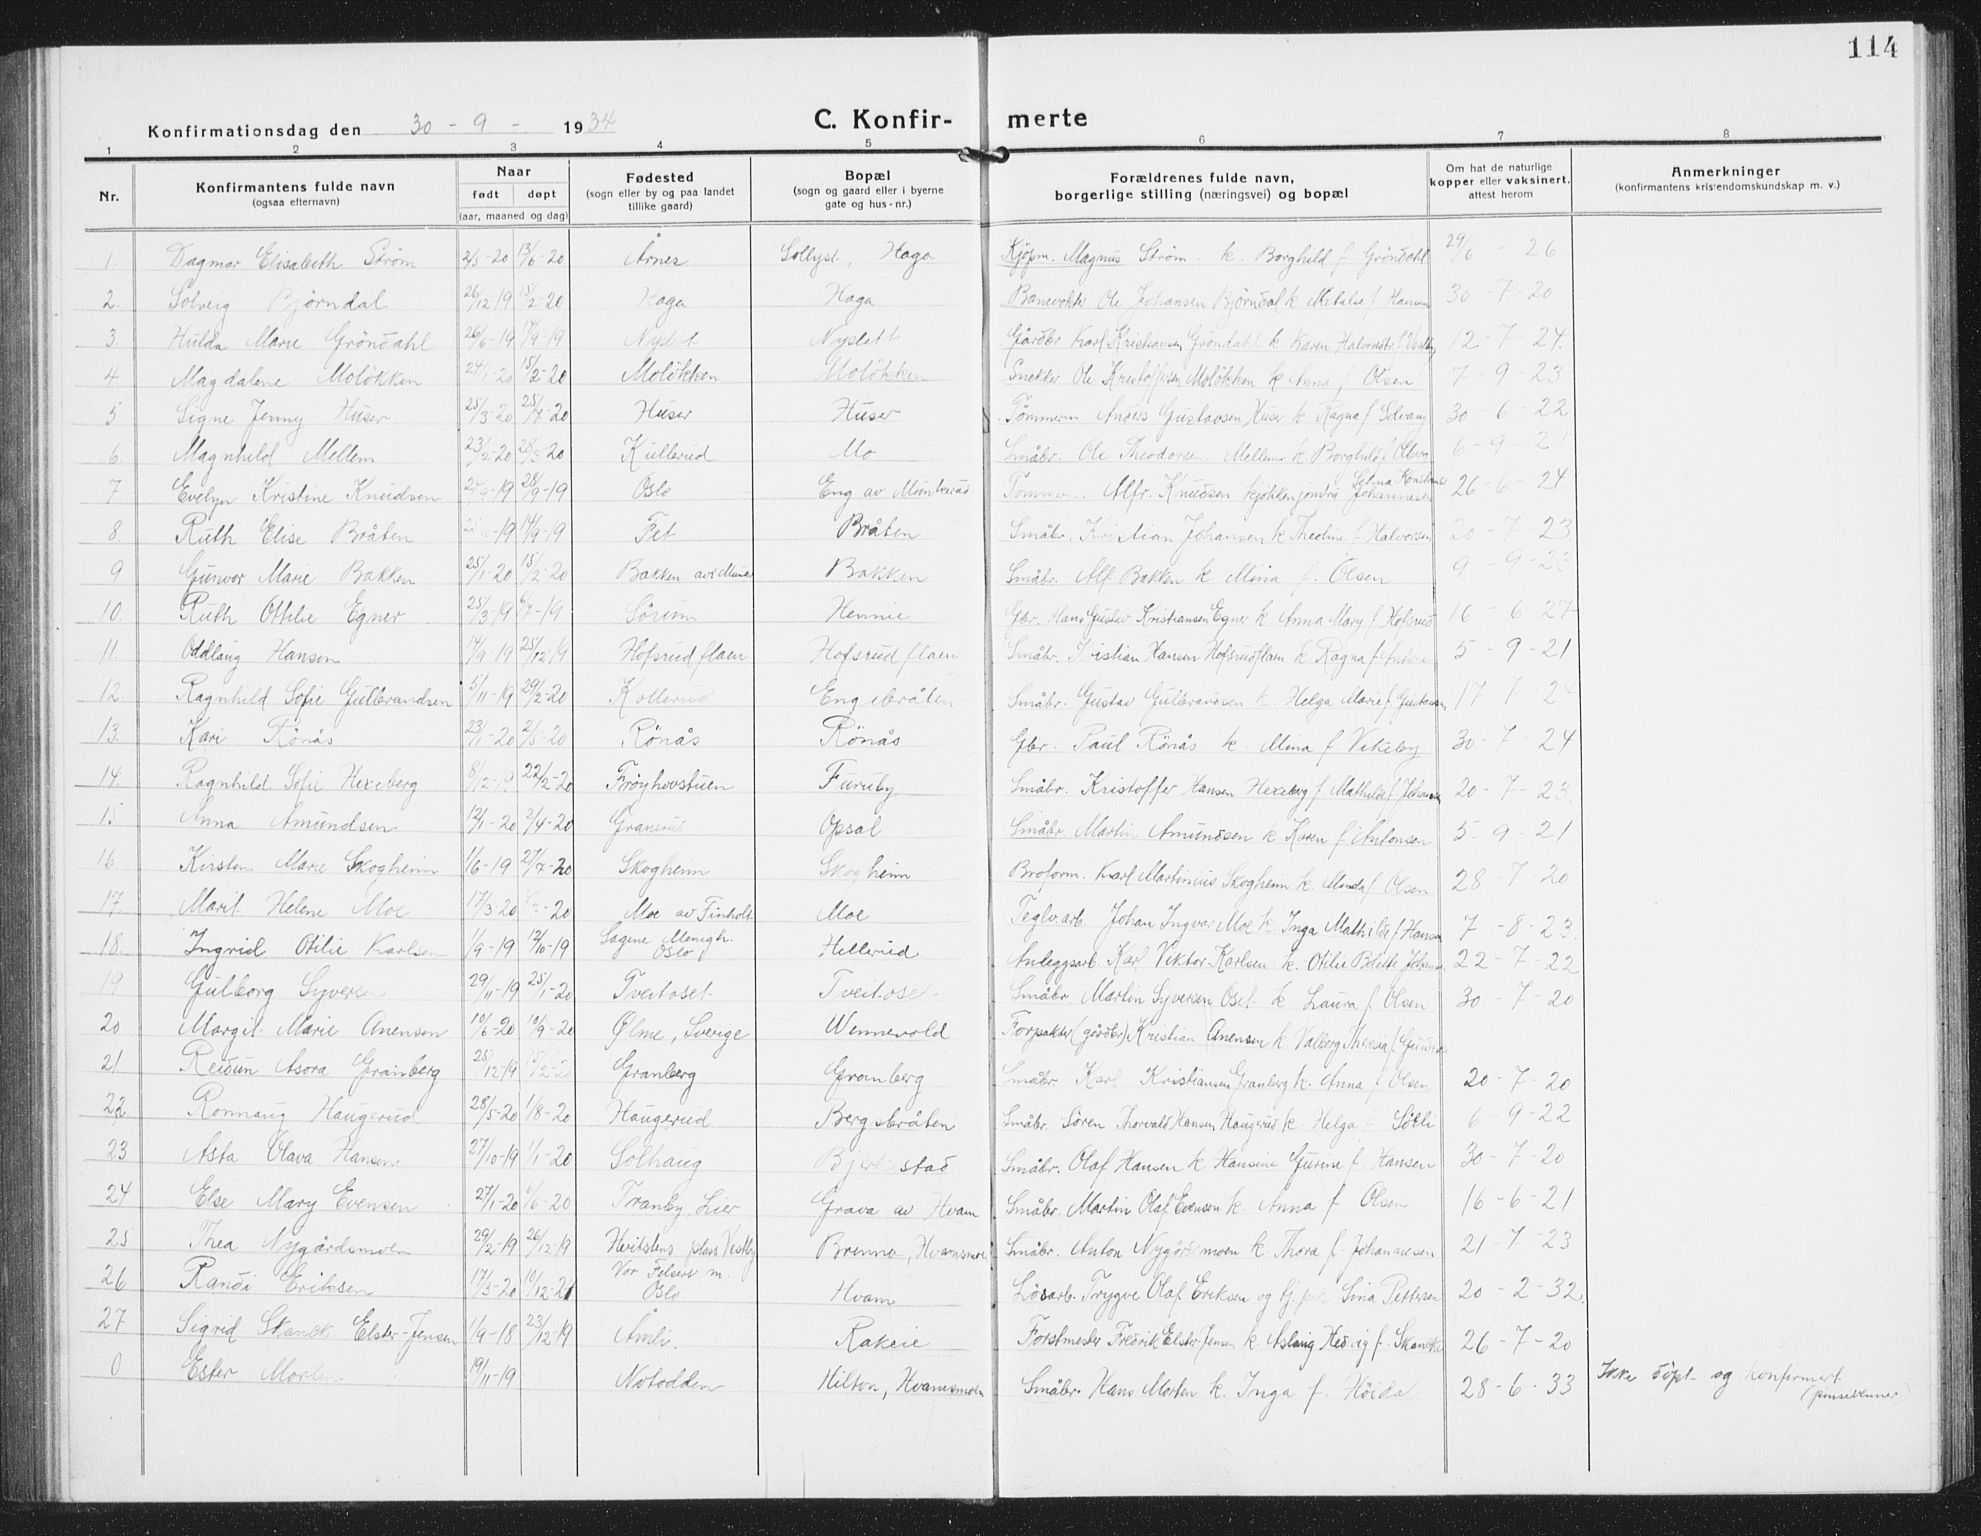 114
Konfirmationsdag den 30 - 9 - 1934
C. Konfir- merte
1 2 3 4 5 6 7 8
Nr.
Konfirmantens fulde navn
(ogsaa efternavn)
Naar
født døpt
(aar, maaned og dag)
Fødested
(sogn eller by og paa landet
tillike gaard)
Bopæl
(sogn og gaard eller i byerne
gate og hus-nr.)
Forældrenes fulde navn,
borgerlige stilling (næringsvei) og bopæl
Om hat de naturlige
kopper eller vaksinert,
attest herom
Anmerkninger
(konfirmantens kristendomskundskap m. v.)
1. Dagmar Elisabeth Strøm 2/5-20 13/6-20 Årnes Sollyst, Haga Kjøpm. Magnus Strøm k. Borghild f. Gröndahl 29/6 - 26
2. Solveig Björndal 26/12-19 15/2-20 Haga Haga Banevokter Ole Johansen Björndal k f Hansen 30-7-20
3. Hulda Marie Gröndahl 26/6-19 14/9-19 Nyslett Gårdbr Karl Kristiansen Gröndahl k Karen 12-7-24.
4 Magdalene Molökken 24/1-20 15/2-20 Molökken Molökken Snekker Ole Kristoffersen Molökken k Anna f Olsen 7-9-23
5 Signe Jenny Huser 25/3-20 25/7-20 Huser Huser Tömmerm. Anders Gustavsen Huser k. Ragna f. 30-6-22
6 Magnhild Mellem 23/2-20 28/3-20 Kullerud Mo Småbr. Ole Theodorsen Mellem k. Borghild f. Olberg 6-9-21
7 Evelyn Kristine Knudsen 28/9-19 Oslo Eng av Alfr. Knudsen Johannesen 26-6-24
8 Ruth Elise Bråten -19 14/9-19 Fet Bråten Småbr. Kristian Johansen k Theoline f. Halvorsen 20-7-23
9 Gunvor Marie Bakken 25/1-20 15/2-20 Bakken Bakken Småbr. Alf Bakken k Mina f. Olsen 9-9-23
10. Ruth Ottilie Egner 25/3-19 6/7-19 Sörum Hennie Gbr. Hans Gustav Kristiansen Egner k Anna Mary f Hofsrud 16-6-27
11. Oddlaug Hansen 14/9-19 25/12-19 Hofsrudflaen Hofsrudflaen Småbr. Kristian Hansen Hofsrudflaen k Ragna f 5-9-21
12. Ragnhild Sofie Gulbrandsen 5/11-19 29/2-20 Kollerud Engebråten Småbr. Gustav Gulbrandsen k. Helga Marie f Gustavsen 17-1-24
13. Kari Rönås 23/1-20 2/5-20 Rönås Rönås Gbr. Paul Rönås k. Mina f. Vikeby 30-7-24
14. Ragnhild Sofie Hexeberg 8/12-19 22/2-20 Frøyhovstuen Furuby Småbr. Kristoffer Hansen Hexeberg f Mathilde f. Johansen 20-7-23.
15 Anna Amundsen 12/1-20 2/4-20 Opsal Småbr. Martin Amundsen k Karen f Antonsen 5-9-21
16 Kirsten Marie Skogheim 1/6-19 Skogheim Skogheim Broform. Karl Martinius Skogheim k. Minda f. Olsen 28-7-20
17. Marit Helene Moe 17/3-20 -20 Moe av Finholt Moe Teglv.arb. Johan Ingvar Moe k. Inga Mathilde f. Hansen 7-8-23.
18. Ingrid Otilie Karlsen 1/9-19 12/10-19 Sagene Menigh. Oslo Hellerud Anleggsarb. Karl Viktor Karlsen k. Otilie f. Johansen 22-7-22
19 Gulborg Syversen 29/11-19 25/1-20 Tveitoset Tveitoset Småbr. Martin Syversen Oset k. Laura f Olsen 30-7-20
20 Margit Marie Anensen 10/6-20 19/9-20 Ølme, Sverige Wennevold Forpakter (gårdbr) Kristian Anensen k Valborg Theresia f.
21 Reidun Asora Granberg 25/12-19 15/2-20 Granberg Granberg Småbr. Karl Kristiansen Granberg k. Anna f. Olsen 20-7-20
22 Ronnaug Haugerud 28/5-20 1/8-20 Haugerud Bergsbråten Småbr. Sören Thorvald Hansen Haugerud k. Helga f. Sötli 6-9-22
23 Asta Olava Hansen 27/10-19 1/1-20 Solhaug Bjerkstad Småbr. Olaf Hansen k. Hansine Gurine f. Hansen 30-7-20
24 Else Mary Evensen 27/1-20 6/6-20 Tranby, Lier Grava av Hvam Småbr. Martin Olaf Evensen k. Anna f Olsen 16-6-21
25 Thea Nygårdsmoen 29/2-19 26/12-19 plass Vestby Brenna, Hvamsmoen Småbr. Anton Nygårdsmoen k. Thora f. Johannesen 21-7-23
26 Randi Eriksen 17/3-20 10/12-21 Vor Frelsers m. Oslo Hvam Lösarb. Trygve Olaf Eriksen og Sina Pettersen 20-2-32.
27 Sigrid Skancke Elster-Jensen 1/9-18 23/12-19 Åmli. Rakeie Forstmester Fredrik Elster-Jensen k. Aslaug Hedvig f. Skancke 26-7-20
0 Ester Morten 19/11-19 Notodden Hilton, Hvamsmoen Småbr. Hans Morten k. Inga f. Höidal 28-6-33 Ikke döpt og konfirmert
(pinsevenner)